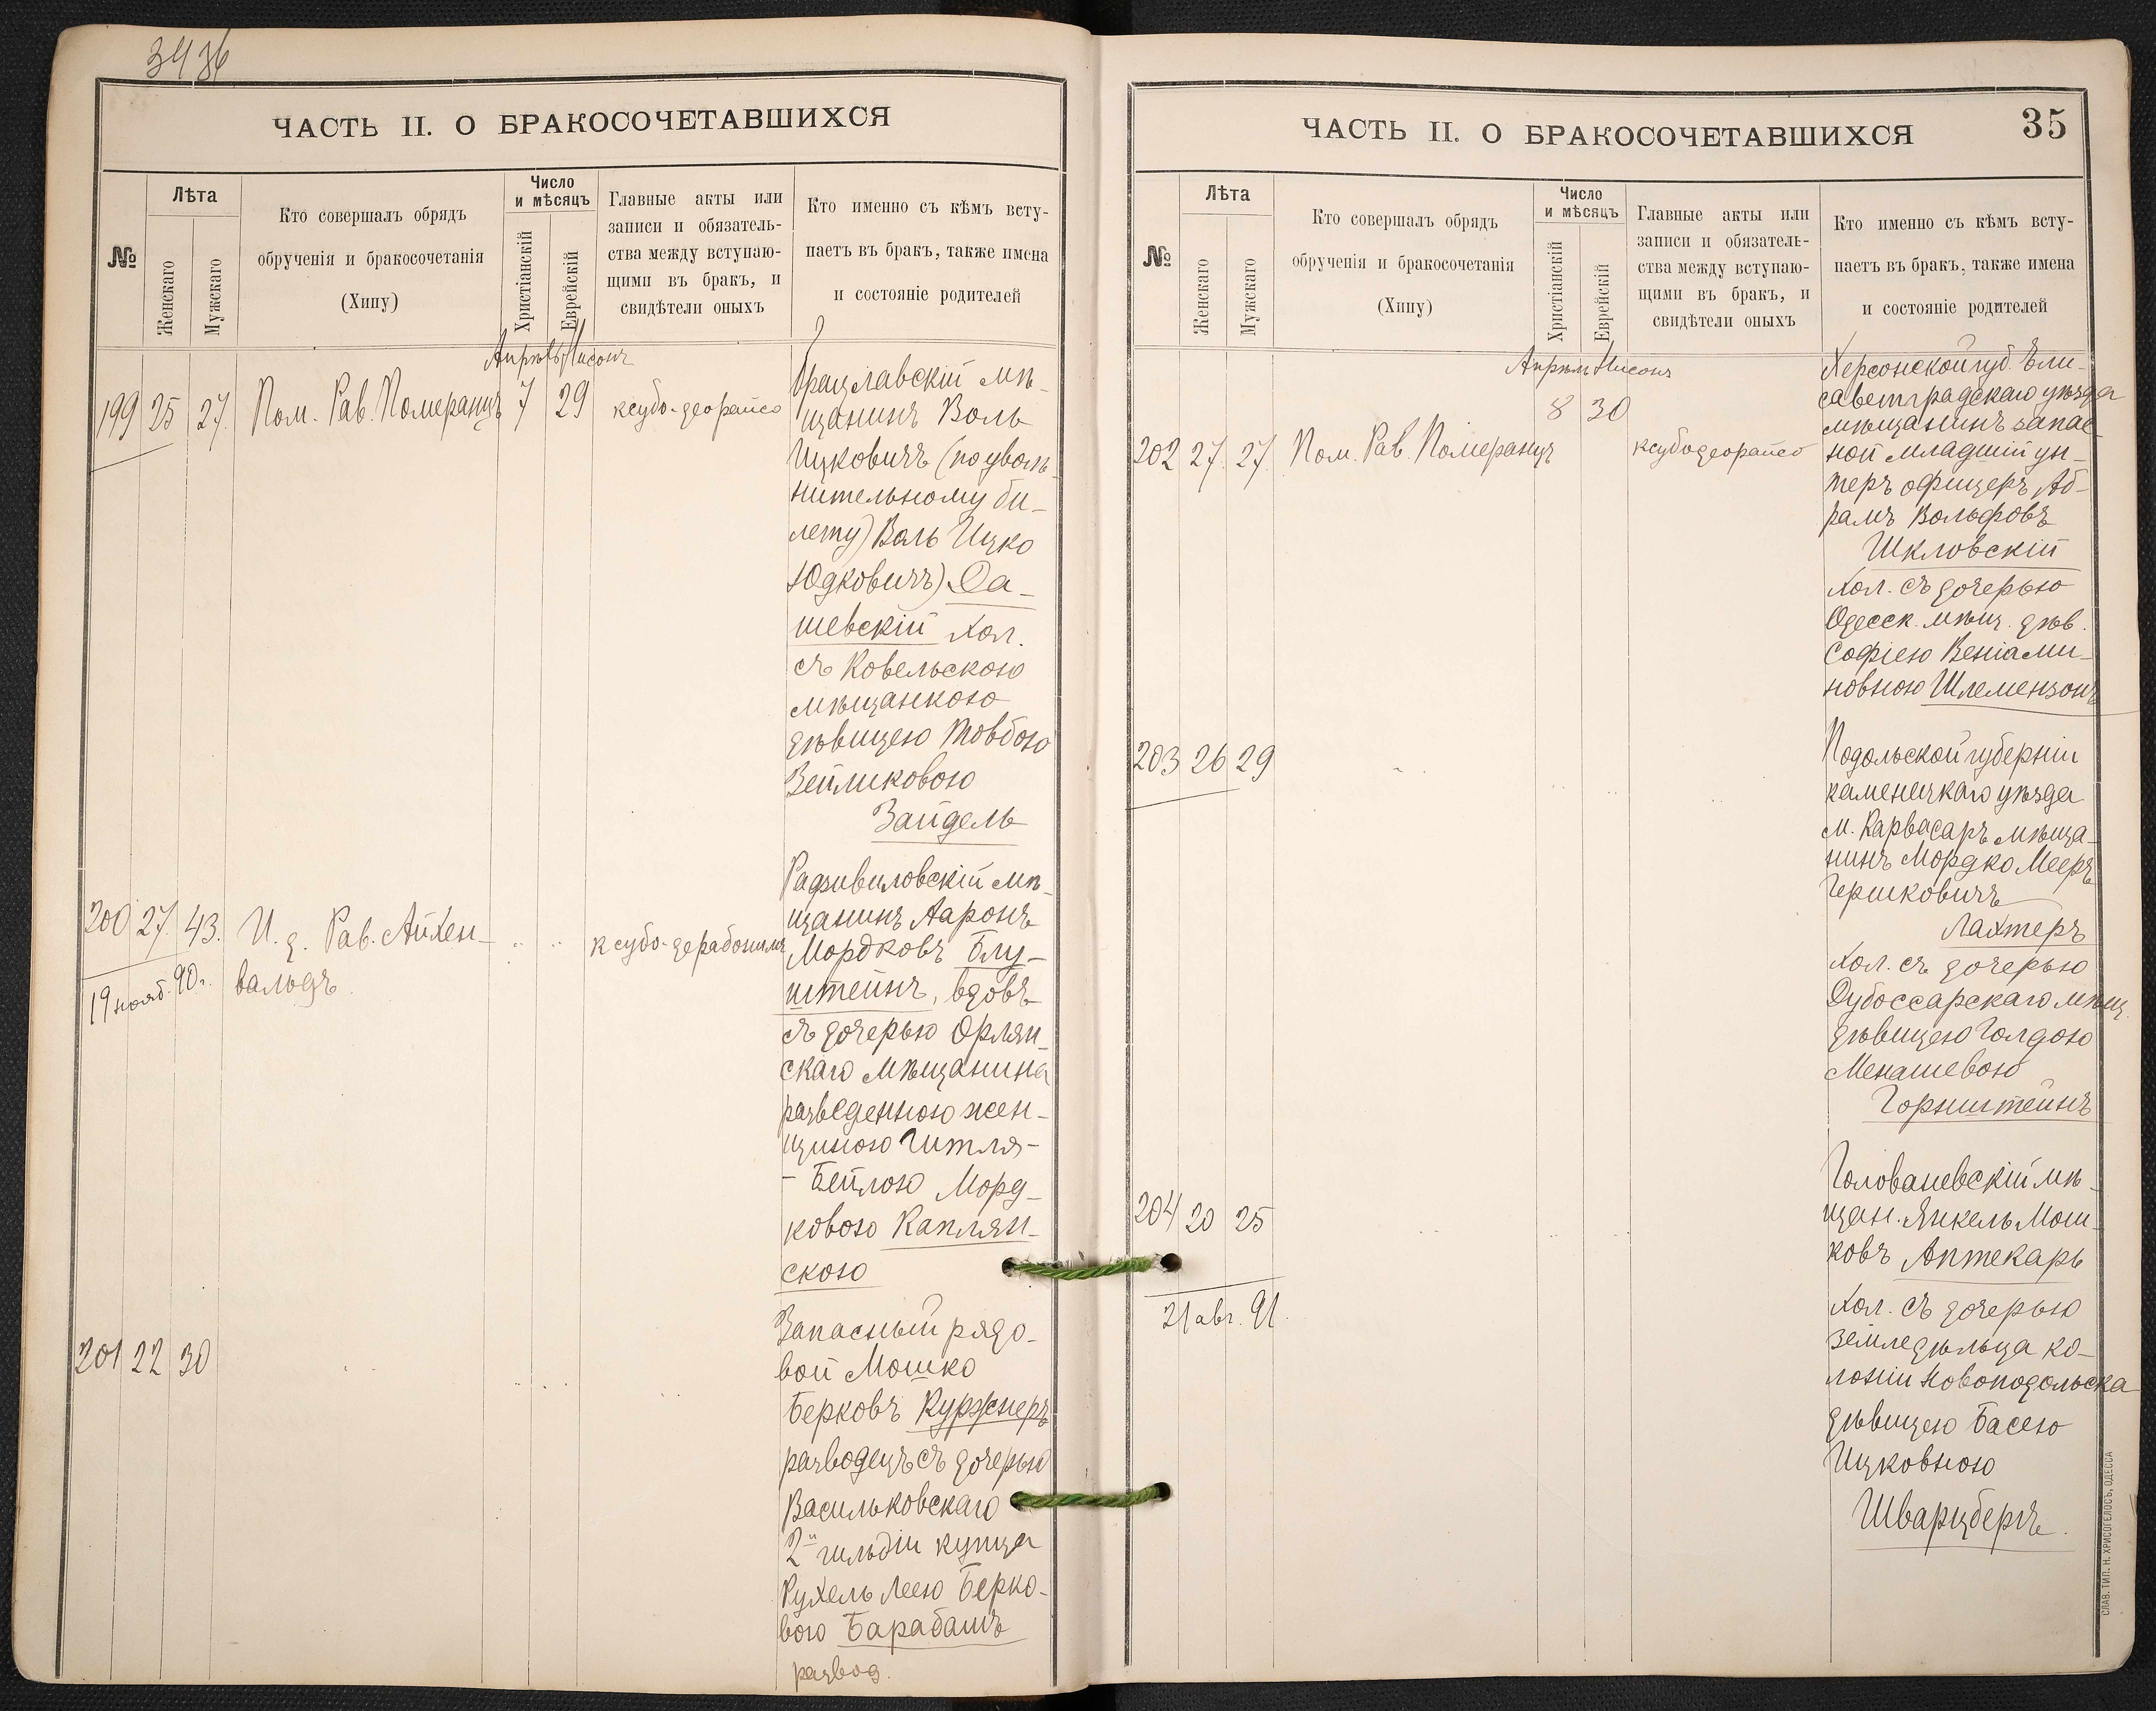 34 36
ЧАСТЬ II. О БРАКОСОЧЕТАВШИХСЯ
№
Лѣта
Женскаго
Мужскаго
Кто совершалъ обрядъ
обрученія и бракосочетанія
(Хипу)
Число
и мѣсяцъ
Христіанскій
Еврейскій
Главные акты или
записи и обязатель-
ства между вступаю-
щими въ бракъ, и
свидѣтели оныхъ
Кто именно съ кѣмъ всту-
паетъ въ бракъ, также имена
и состояніе родителей
Апрѣль Нисонъ
199 25 27 Пом. Рав. Померанцъ 7 29 ксубо-деорайсо
Брацлавскій мѣ-
щанинъ Воль
Ицковичъ (по уволь-
нительному би-
лету) Воль Ицко
Юдковичъ) Да-
шевскій хол.
съ Ковельскою
мѣщанкою
дѣвицею Товбою
Зейликовою
Зайдель
200 27 43. И. д. Рав. Айхен-
вальдъ
19 нояб. 90 г.
ксубо-дерабонимъ
Радзивиловскій мѣ-
щанинъ Ааронъ
Мордковъ Блу-
штейнъ, вдовъ
съ дочерью Орлян-
скаго мѣщанина
разведенною жен-
щиною Гитля-
- Бейлою Морд-
ковою Каплян-
скою
201 22 30
Запасный рядо-
вой Мошко
Берковъ Куржнеръ
разводецъ съ дочерью
Васильковскаго
2й гильдіи купца
Рухель Леею Берко-
вою Барабашъ
развод.
35
ЧАСТЬ II. О БРАКОСОЧЕТАВШИХСЯ
№
Лѣта
Женскаго
Мужскаго
Кто совершалъ обрядъ
обрученія и бракосочетанія
(Хипу)
Число
и мѣсяцъ
Христіанскій
Еврейскій
Главные акты или
записи и обязатель-
ства между вступаю-
щими въ бракъ, и
свидѣтели оныхъ
Кто именно съ кѣмъ всту-
паетъ въ бракъ, также имена
и состояніе родителей
Апрѣль Нисонъ
8 30
202 27 27 Пом. Рав. Померанцъ ксубодеорайсо
Херсонской губ. Ели-
саветградскаго уѣзда
мѣщанинъ запас-
ной младшій ун-
теръ офицеръ Аб-
рамъ Вольфовъ
Шкловскій
хол. съ дочерью
Одесск. мѣщ. дѣв.
Софіею Веніами-
новною Шлемензонъ
203 26 29
Подольской губерніи
каменецкаго уѣзда
м. Карвасаръ мѣща-
нинъ Мордко Мееръ
Гершковичъ
Лахтеръ
хол. съ дочерью
Дубоссарскаго мѣщ.
дѣвицею Голдою
Менашевою
Горнштейнъ
204 20 25
21 авг. 91.
Голованевскій мѣ-
щан. Янкель Мош-
ковъ Аптекарь
хол. съ дочерью
земледѣльца ко-
лоніи Новоподольска
дѣвицею Басею
Ицковною
Шварцбергъ
СЛАВ. ТИП. Н. ХРИСОГЕЛОСЪ, ОДЕССА